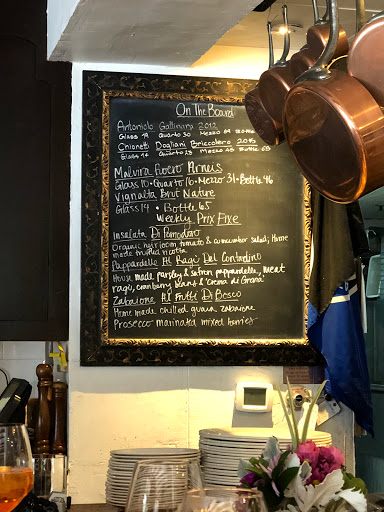 On The Board
Antoniolo Gattinara 2012
Glass 19 Quarto 30 Mezzo 64 Bottle
Chionetti Dogliani Briccolero 2015
Glass 14 Quarto 23 Mezzo 45 Bottle 65
Malvira Roero Arneis
Glass 10 • Quarto 16 • Mezzo 31 • Bottle 46
Vignalta Brut Nature
Glass 14 • Bottle 65
Weekly Prix Fixe
Insalata Di Pomodoro
Organic heirloom tomato & cucumber salad; Home
made truffled ricotta
Pappardelle Al Ragu Del Contadino
House made parsley & safron pappardelle, meat
ragu, cranberry beans & crema di Grana
Zabaione Al Frutti Di Bosco
Home made chilled guava zabaione
Prosecco marinated mixed berries